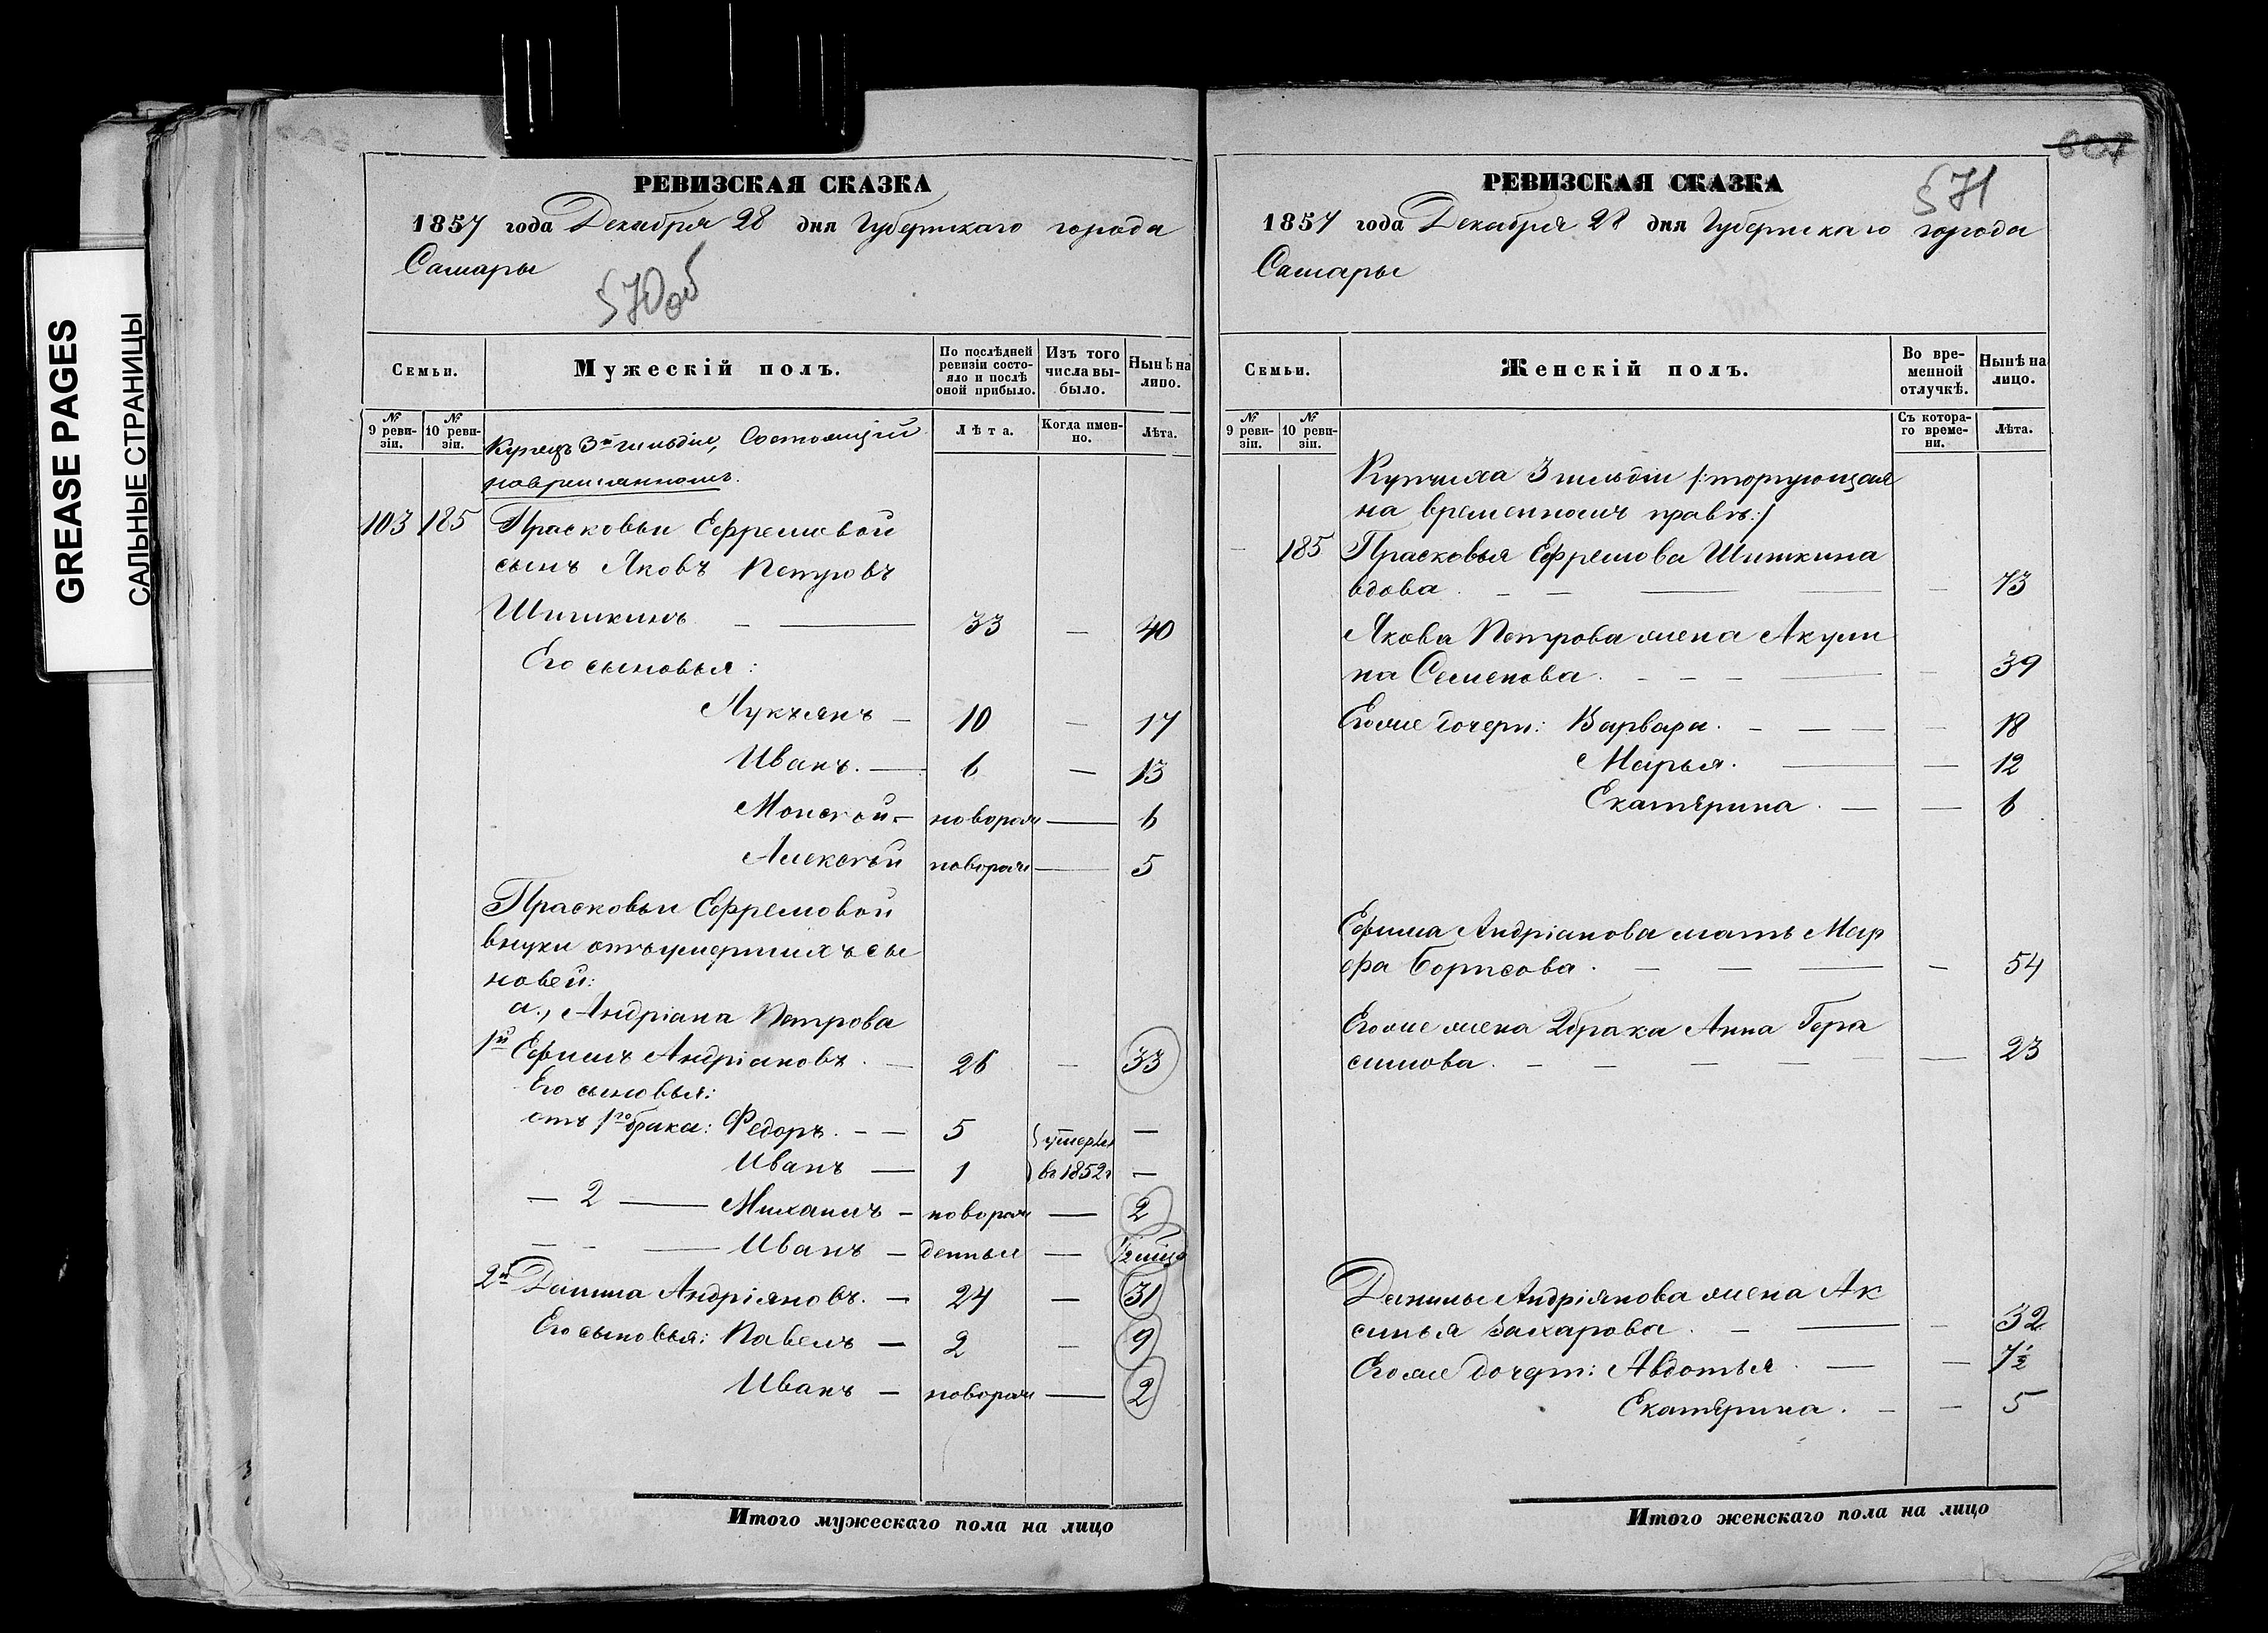 GREASE PAGES
САЛЬНЫЕ СТРАНИЦЫ
РЕВИЗСКАЯ СКАЗКА
1857 года Декабря 28 дня Губернскаго города
Самары
570об
Семьи.
Мужескій полъ.
По послѣдней ревизіи состояло и послѣ оной прибыло.
Изъ того числа выбыло.
Нынѣ на лицо.
№ 9 ревизіи.
№ 10 ревизіи.
Лѣта.
Когда именно.
Лѣта.
Купецъ 3й гильдіи, Состоящій
103 185 Прасковьи Ефремовой
сынъ Яковъ Петровъ
Шишкинъ — 33 — 40
Его сыновья:
Лукьянъ — 10 — 17
Иванъ. — 6 — 13
Моисей — новорож — 6
Алексѣй новорож — 5
Прасковьи Ефремовой
внуки отъ умершихъ сы
новей:
а., Андріана Петрова
1й Ефимъ Андріановъ. — 26 — 33
Его сыновья:
отъ 1го брака: Федоръ. — 5 умерли —
Иванъ — 1 въ 1852г —
— 2 — Михаилъ — новорож — 2
— — Иванъ — денные — 1/2 мца
2й Данила Андріяновъ. — 24 — 31
Его сыновья: Павелъ — 2 — 9
Иванъ — новорож — 2
Итого мужескаго пола на лицо
607
571
РЕВИЗСКАЯ СКАЗКА
1857 года Декабря 28 дня Губернскаго города
Самары
Семьи.
Женскій полъ.
Во временной отлучкѣ.
Нынѣ на лицо.
№ 9 ревизіи.
№ 10 ревизіи.
Съ котораго времени.
Лѣта.
Купчиха 3 гильдіи /:торгующая
на временномъ правѣ:/
— 185 Прасковья Ефремова Шишкина
вдова. — — — 73
Якова Петрова жена Акули
на Семенова. — — — 39
Его же дочери: Варвара. — — 18
Марья. — — 12
Екатерина. — — 6
Ефима Андріанова мать Мар
фа Борисова. — — 54
Его же жена 2 брака Анна Гера
симова. — — — 23
Данилы Андріянова жена Ак
синья Захарова. — — 32
Его же дочери: Авдотья. — — 7½
Екатерина. — — 5
Итого женскаго пола на лицо